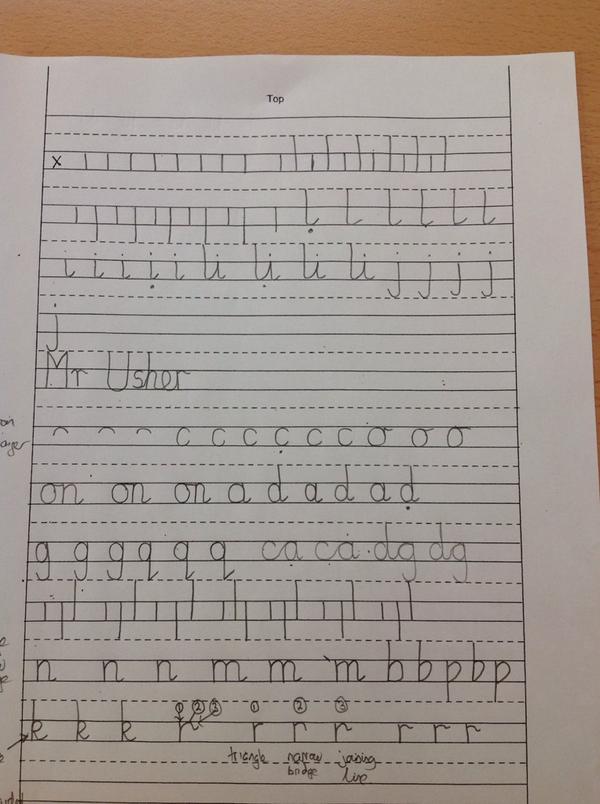 Top
x
l l l l l l
i i i i i li li li li j j j j
j
Mr Usher
c c c c c c o o o
on on on a d a d a d
g g g q q q ca ca dg dg
n n n m m m b b p b p
① ② ③ ① ② ③
k k k r r r r r r r
triangle narrow bridge joining line